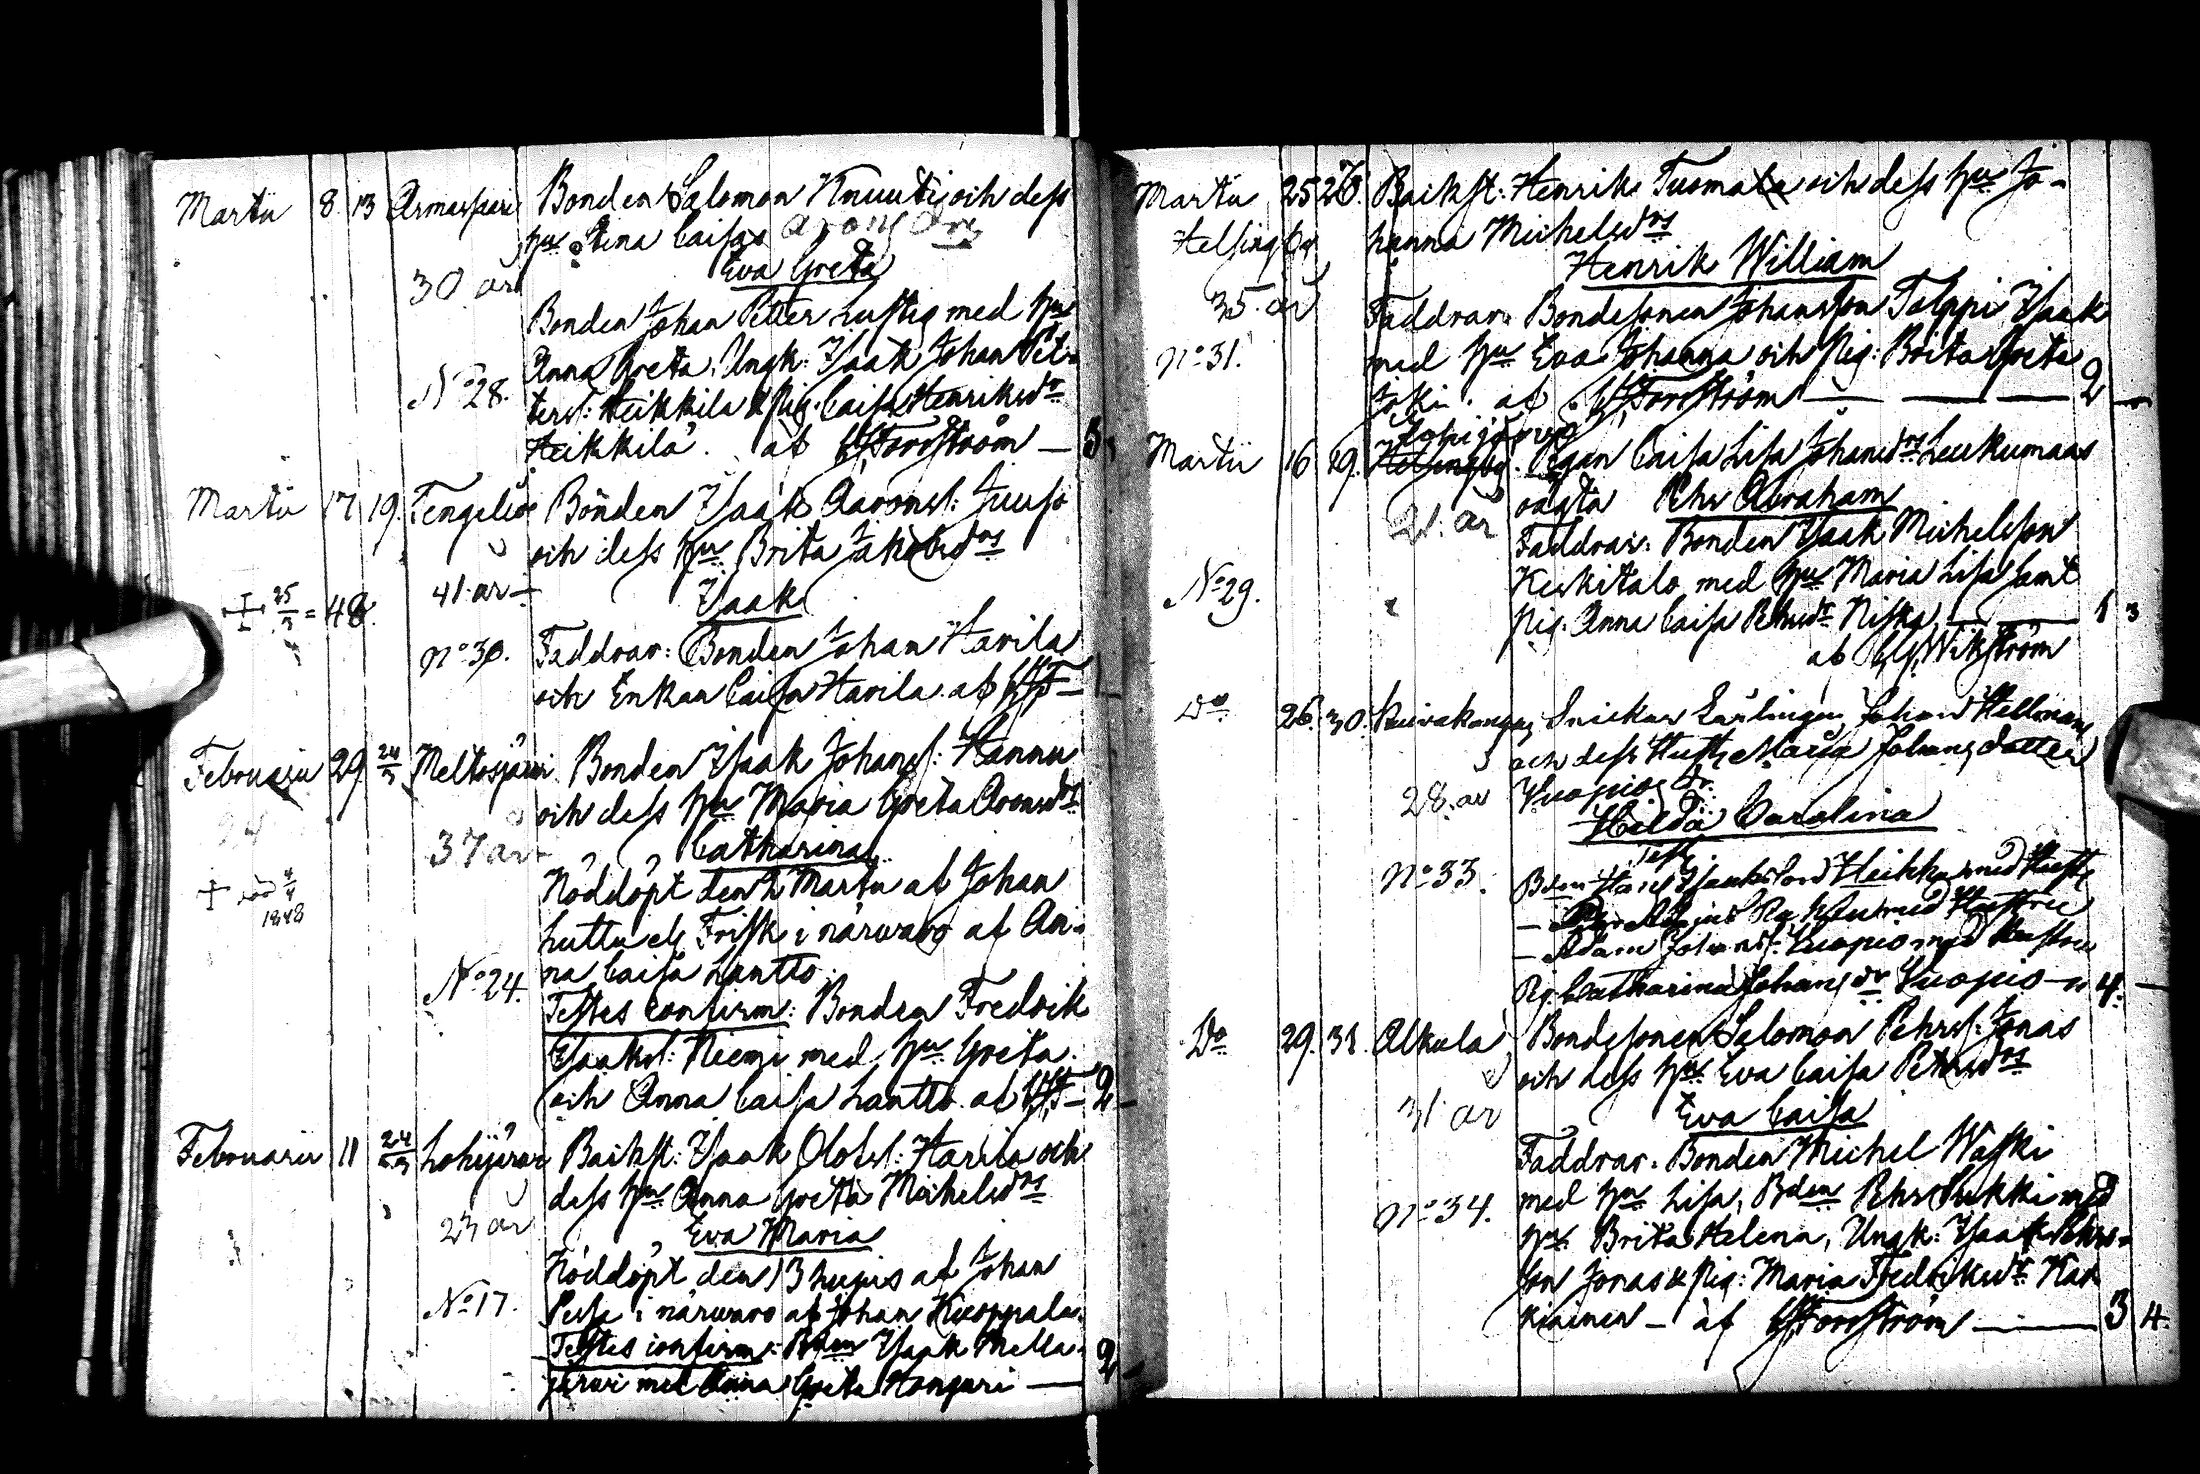 Martii 8. 13 Armassari Bonden Salomon Knuuti och dess
hu Stina Caisa Arons dr
Eva Greta
30 år
Bonden Johan Petter Lustig med hu
Anna Greta, Ungk: Isaak Johan Pet-
No 28.
ters: Heikkilä & Pig. Caisa Henriksdr
Heikkilä. af Forsström — 3
Martii 17 19. Tengeliö Bonden Isaak Aarons: Juuso
och dess hu Brita Jakobsdrs
41. år
Isaak
25/3 = 48.
No 30. Faddrar: Bonden Johan Harila
och Enkan Caisa Harila. af
Februarii 29 24/3 Meltosjärvi Bonden Isaak Johans: Hannu
och dess hu Maria Greta Aronsdr
37 år
Catharina
Nöddöpt den 2 Martii af Johan
död 4/4 1848
Frisk i närwaro af An-
na Caisa Lantto.
No 24.
Testes confirm: Bonden Fredrik
Isaaks: Niemi med hu Greta
och Anna Caisa Lantto. af 2
Februarii 11 24/3 Lohijärvi Backst: Isaak Olofs: Harila och
dess hu Anna Greta Michelsdrs
23 år
Eva Maria
Nöddöpt den 13 hujus af Johan
No 17.
i närwaro af Johan Kuoppala.
Testes confirm: Bden Isaak Mella-
järvi med Anna Greta Hangari — 2
Martii 25 26. Backst: Henrik Tuomala och dess hu Jo-
Helsingby hanna Michelsdrs
Henrik William
35. år
Faddrar: Bondesonen Johansson Talppi Isaak
No 31.
med hu Eva Johanna och Pig: Brita Greta
af Forsström — 2
Lohijärvi
Martii 16 19. Helsingby. Pigan Caisa Lisa Johansdrs Leukumaas
oägta Pehr Abraham
21. år
Faddrar: Bonden Isaak Michelsson
Keskitalo med hu Maria Lisa samt
No 29.
Pig. Anna Caisa Pehrsdr Niska, — 1 3
af Wikström
Do 26. 30. Kuivakangas Snickare Lärlingen Johan Hellman
och dess Hust. Maria Johans dotter
28. år Kuopio dr.
Hilda Carolina
Test.
No 33. Bden Hans Isaksson Heikka med Hust
Adam Johans: Kuopio med Hustru
Pig. Catharina Johans dr Kuopio — 4.
Do 29. 31. Alkula Bondesonen Salomon Pehrs: Jonas
och dess hu Eva Caisa Petersdrs
31 år
Eva Caisa
Faddrar. Bonden Michel Waski
No 34.
med hu Lisa, Bden Pehr Pukki med
hu Brita Helena, Ungk: Isaak Pehrs-
son Jonas & Pig: Maria Fredriksdr Kar
kiainen — af Forsström — 3 4.